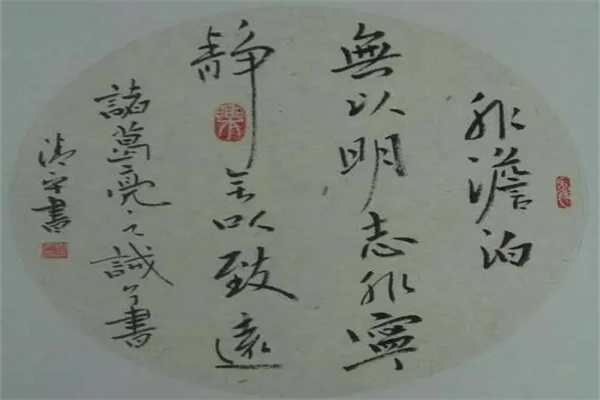 非澹泊
無以明志非寧
靜無以致遠
諸葛亮之誡子書
清宇書